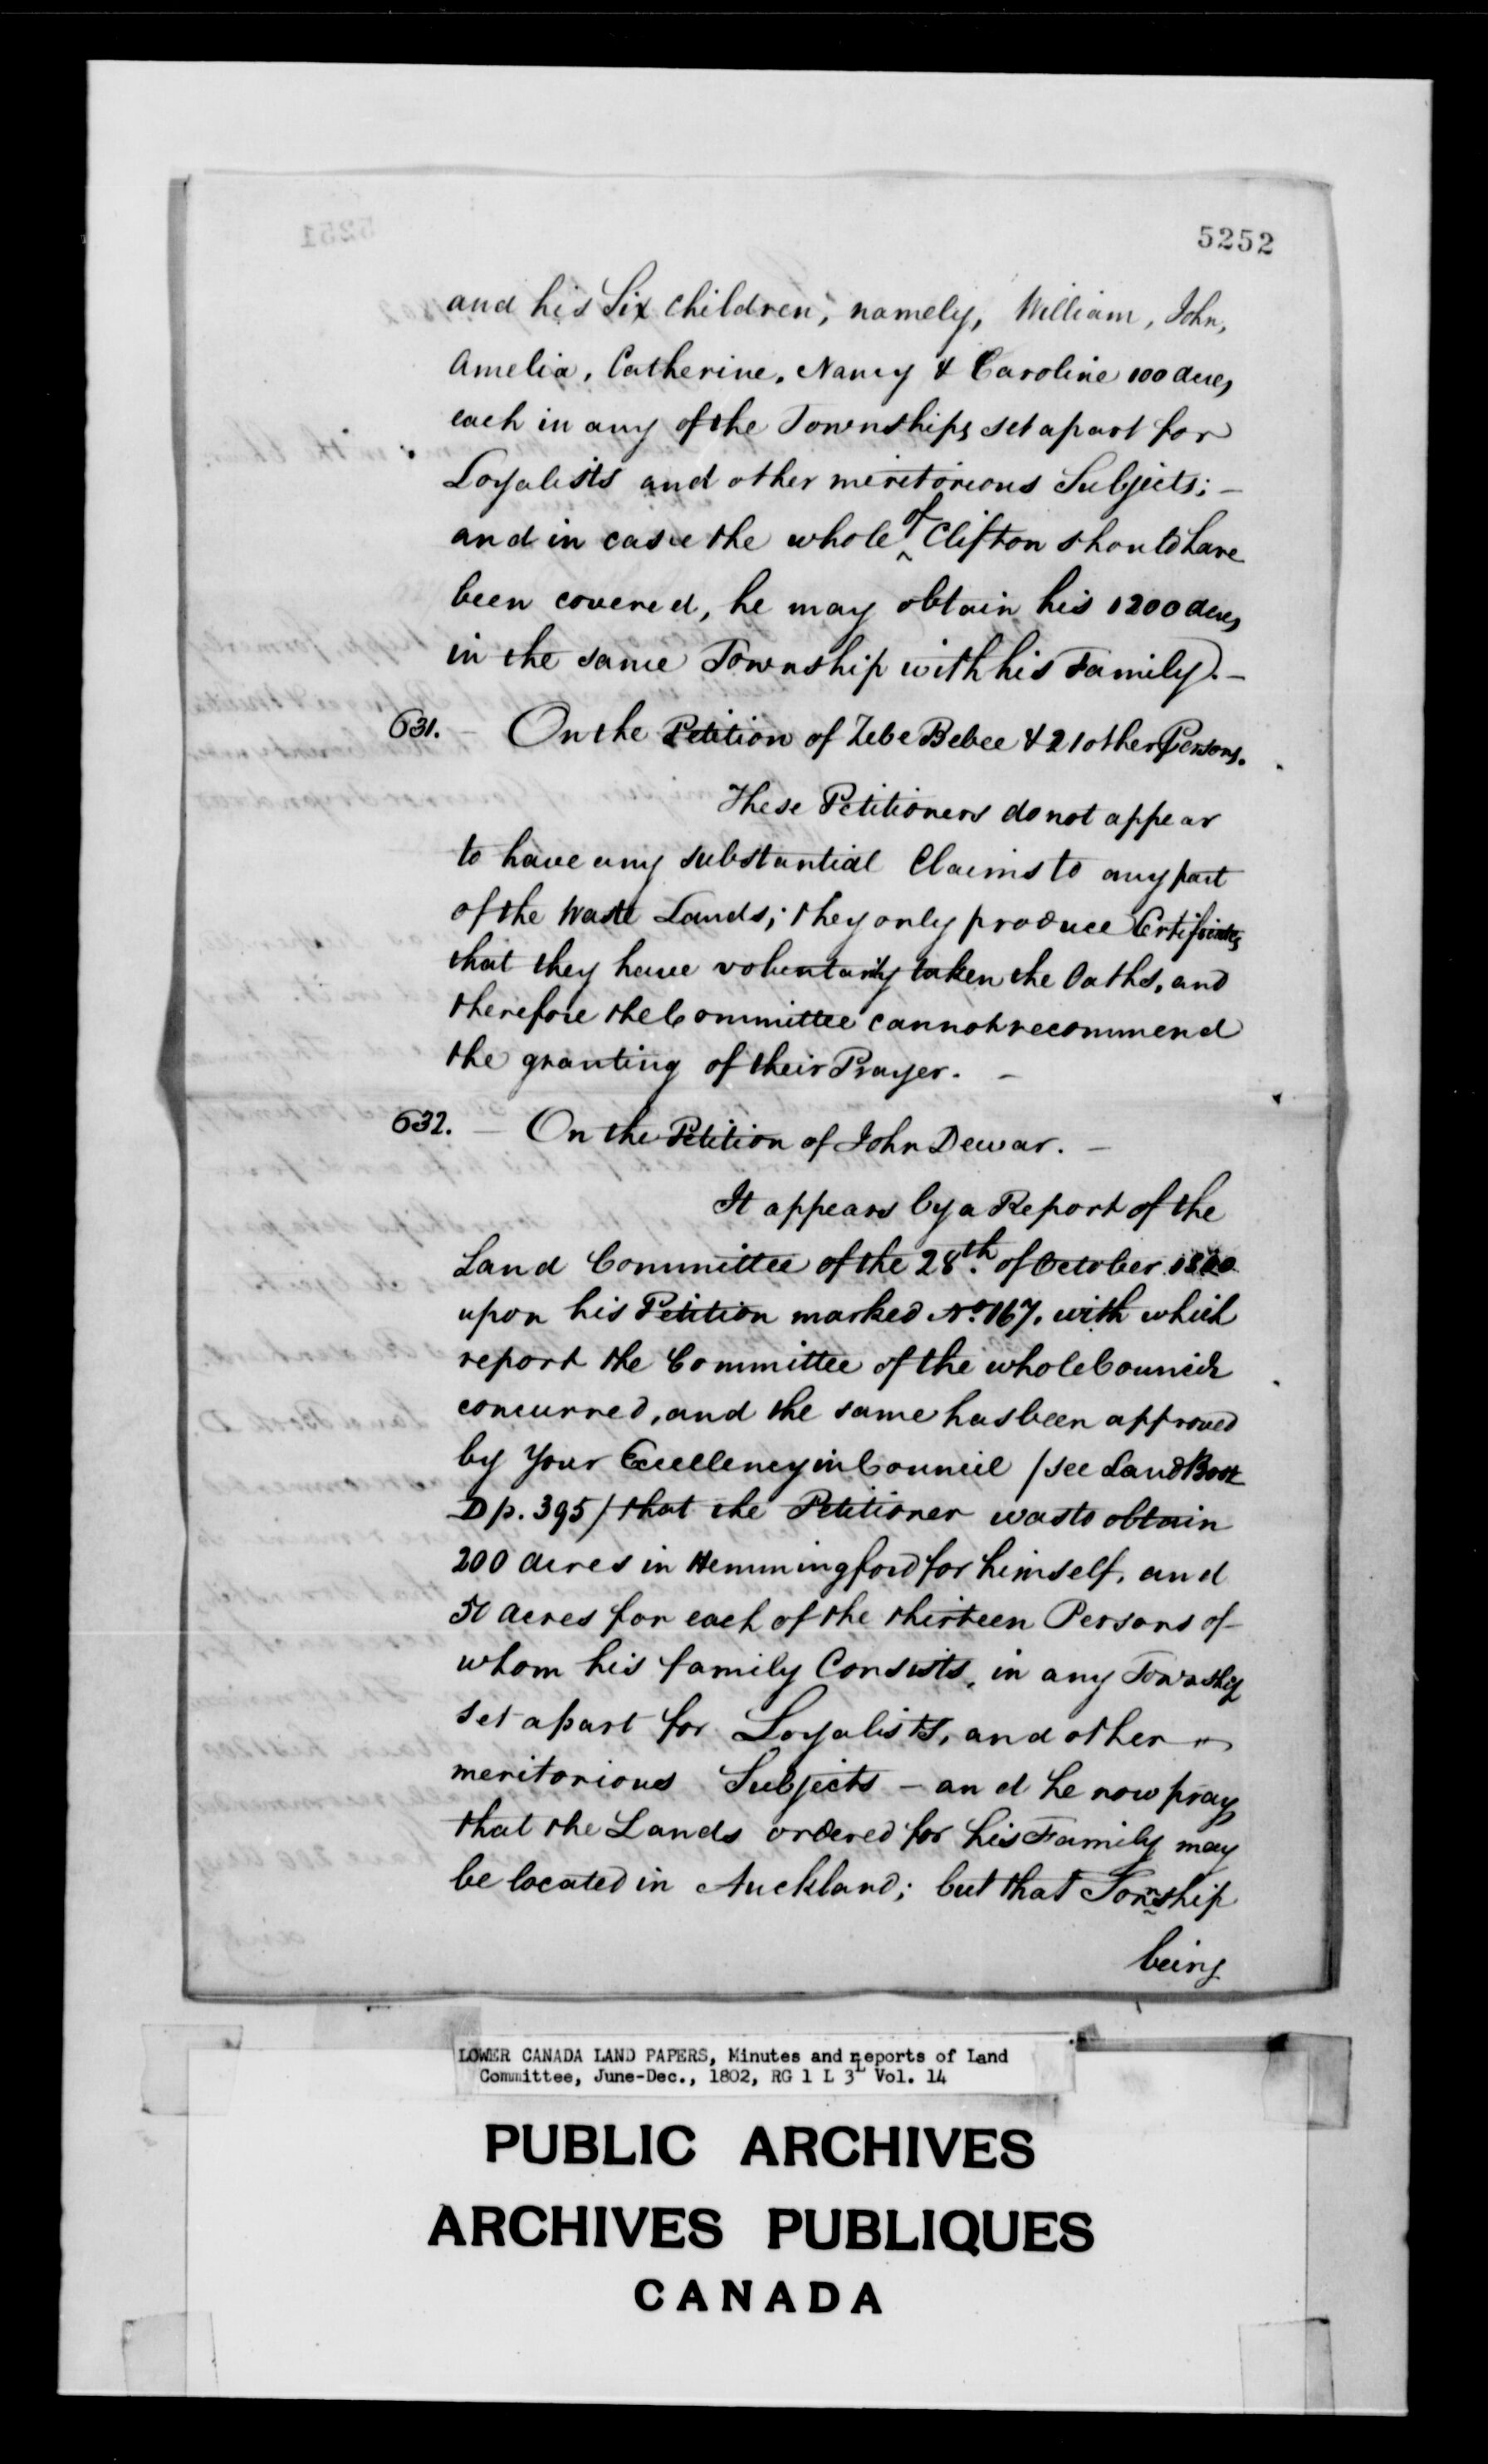 5252
and his Six Children, namely, William, John,
Amelia, Catherine, Nancy & Caroline 100 acres
each in any of the Townships set apart for
Loyalists and other meritorious Subjects; —
and in case the whole of Clifton should have
been covered, he may obtain his 1200 acres
in the same Township with his Family. —
631. — On the Petition of Zebe Bebee & 21 other Persons.
These Petitioners do not appear
to have any substantial Claims to any part
of the Waste Lands; they only produce Certificates
that they have voluntarily taken the Oaths, and
therefore the Committee cannot recommend
the granting of their Prayer. —
632. — On the Petition of John Dewar. —
It appears by a Report of the
Land Committee of the 28th. of October 1800
upon his Petition marked No. 167. with which
report the Committee of the whole Council
concurred, and the same has been approved
by Your Excellency in Council /see Land Book
D p. 395/ that the Petitioner was to obtain
200 acres in Hemmingford for himself, and
50 acres for each of the thirteen Persons of
whom his family Consists, in any Township
set apart for Loyalists, and other
meritorious Subjects — and he now prays
that the Lands ordered for his Family may
be located in Auckland; but that Township
being
LOWER CANADA LAND PAPERS, Minutes and Reports of Land
Committee, June-Dec., 1802, RG 1 L 3L Vol. 14
PUBLIC ARCHIVES
ARCHIVES PUBLIQUES
CANADA